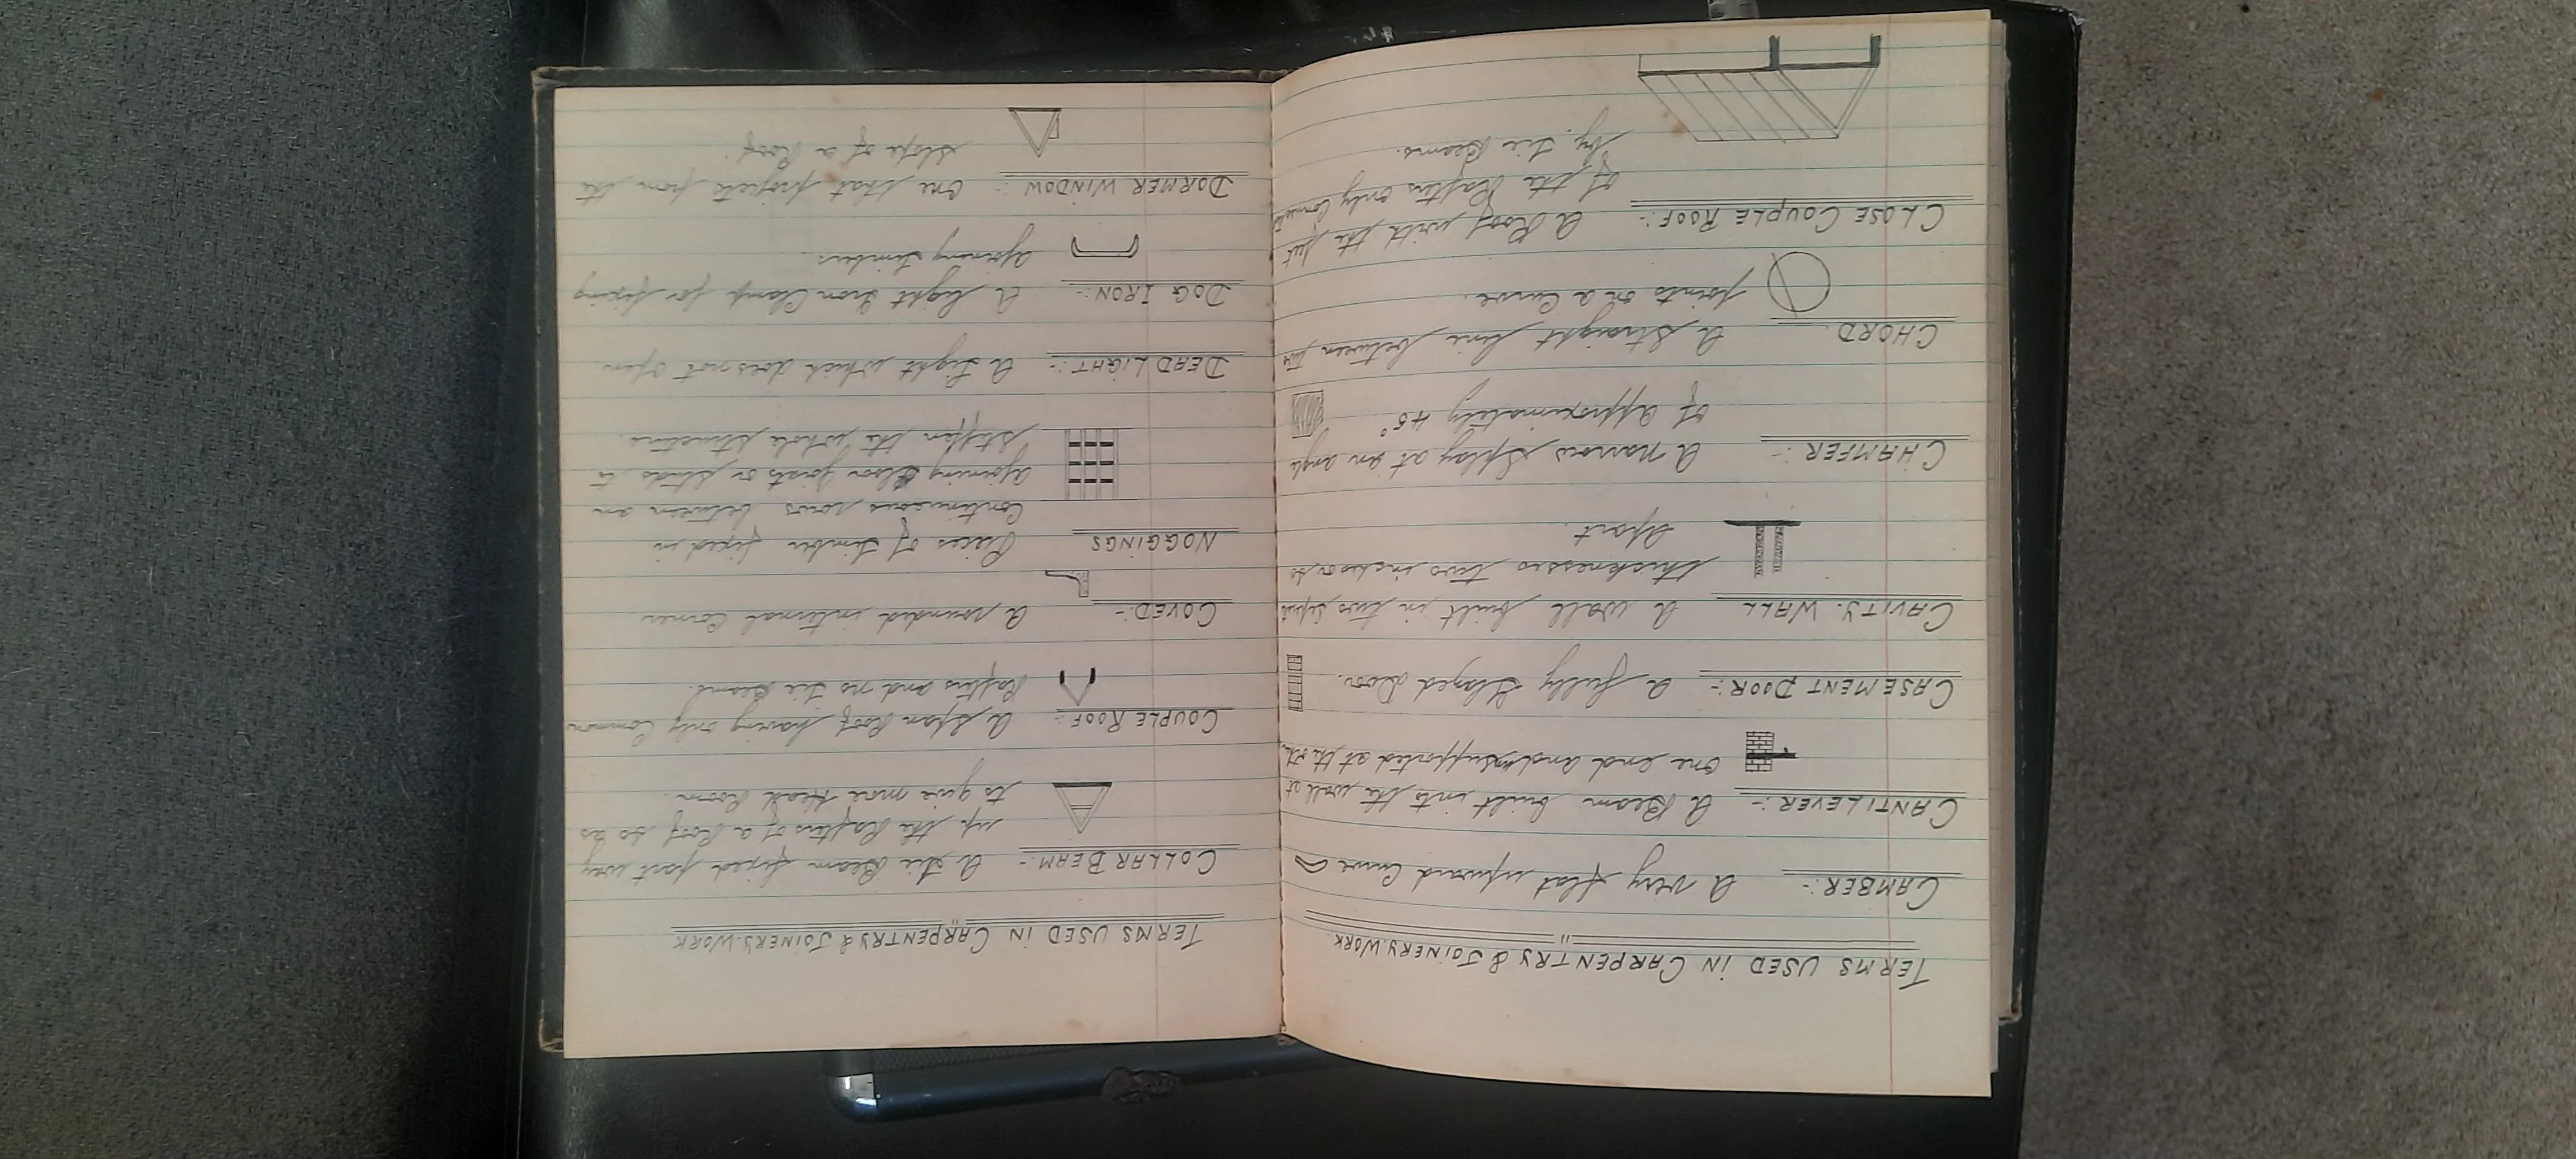 TERMS USED IN CARPENTRY & JOINERY. WORK.
CAMBER:- A very flat upward Curve
CANTILEVER:- A Beam built into the wall at
one end and unsupported at the
CASEMENT DOOR:- A fully Glazed Door.
CAVITY. WALL A wall built in two
thicknesses two inches or so
Apart.
CHAMFER:- A narrow Splay at an angle
of Approximately 45°
CHORD. A Straight line between two
points on a Curve.
CLOSE COUPLE ROOF:- A Roof with the feet
of the Rafters only
by. tie Beams.
TERMS USED IN CARPENTRY & JOINERS. WORK
COLLAR BEAM:- A tie Beam fixed part way
up the Rafters of a Roof so as
to give more Head Room.
COUPLE ROOF:- A Span Roof having only Common
Rafters and no tie Beams.
COVED:- A rounded internal Corner.
NOGGINGS Pieces of timber fixed in
Continuous rows between an
Ajoining floor joists or studs to
stiffen the whole structure.
DEAD LIGHT:- A Light which does not Open.
DOG IRON:- A light Iron Clamp for fixing
Ajoining timbers.
DORMER WINDOW:- One that projects from the
slope of a Roof.